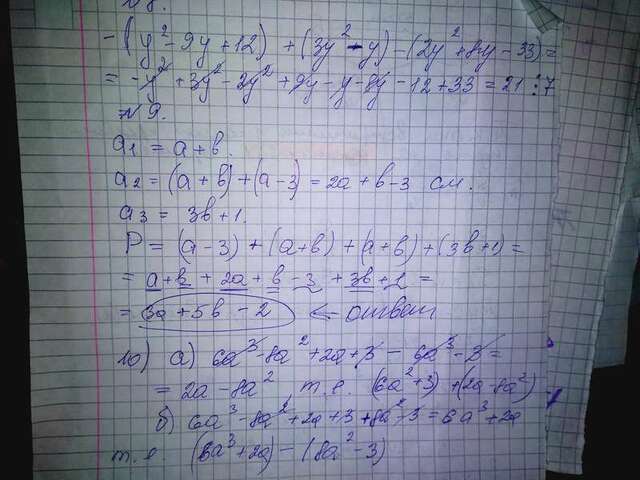 №8.
-(y²-9y+12) + (3y²-y)-(2y²+8y-33)=
= -y² + 3y² - 2y² + 9y - y - 8y - 12 + 33 = 21 ⋮ 7
№9.
a₁ = a+b.
a₂ = (a+b)+(a-3) = 2a+b-3 см.
a₃ = 3b+1.
P = (a-3) + (a+b) + (a+b) + (3b+1) =
= a+b + 2a+b-3 + 3b+1 =
= 3a+5b-2 ← ответ
10) а) 6a³-8a²+2a+3 - 6a³-3 =
= 2a-8a² т.е. (6a²+3)+(2a-8a²)
б) 6a³-8a²+2a+3+8a²-3=6a³+2a
т.е. (6a³+2a)-(8a²-3)